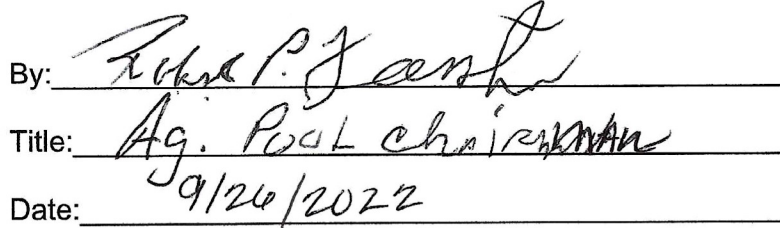 By: P.
Title: Ag. Pool Chairman
Date: 9/26/2022